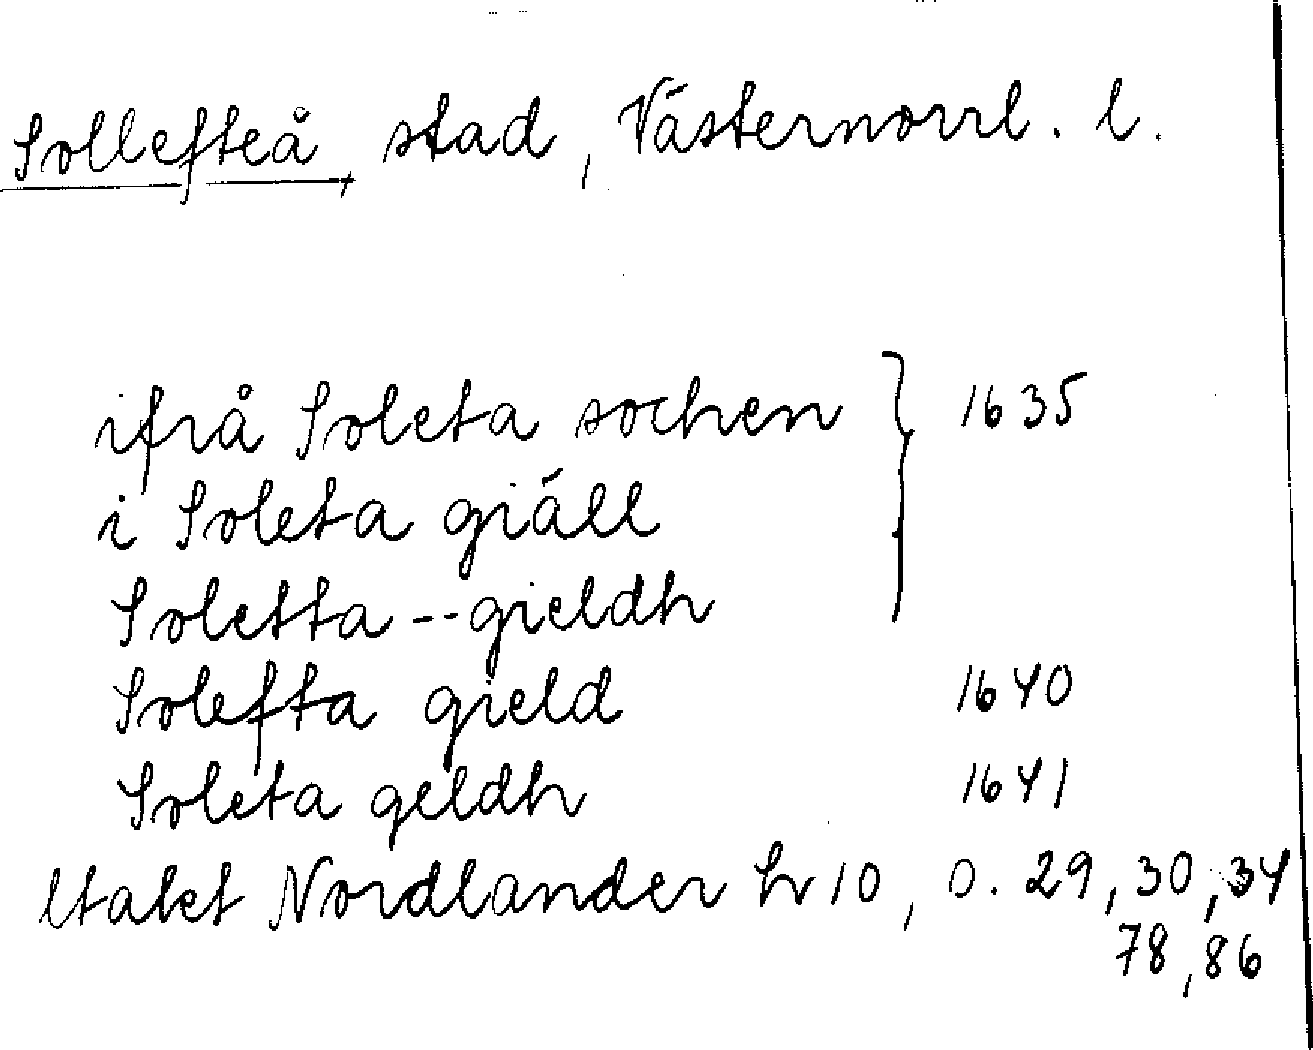 Sollefteå, stad, Västernorrl. l.
ifrå Soleta sochen } 1635
i Soleta giäll
Soletta -- gieldh
Solefta gield 1640
Soleta geldh 1641
Nordlander 10, s. 29, 30, 34
78, 86